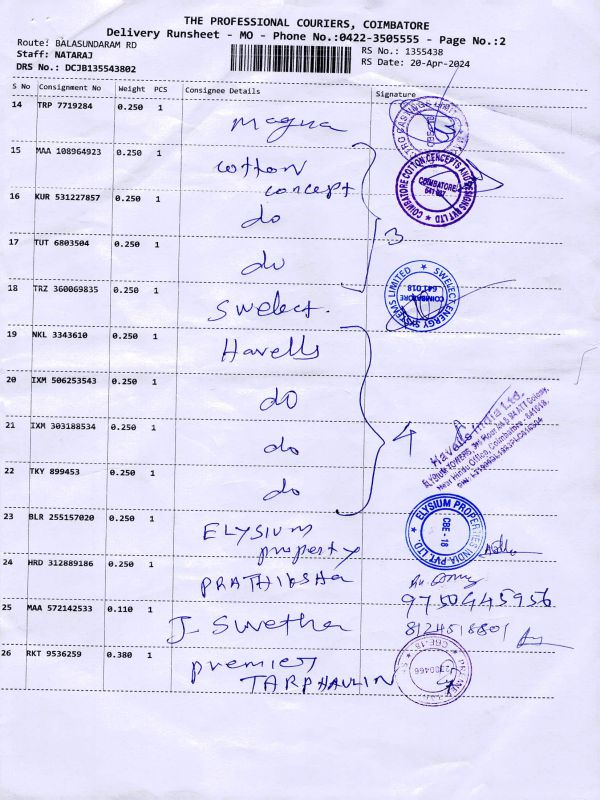 THE PROFESSIONAL COURIERS, COIMBATORE
Delivery Runsheet - MO - Phone No.:0422-3505555 - Page No.:2
Route: BALASUNDARAM RD
Staff: NATARAJ
DRS No.: DCJB135543802
RS No.: 1355438
RS Date: 20-Apr-2024
S No Consignment No Weight PCS Consignee Details Signature
14 TRP 7719284 0.250 1
magna
15 MAA 108964923 0.250 1 cotton
concept
COIMBATORE COTTON CONCEPTS AND DESIGNS PVT LTD
COIMBATORE
16 KUR 531227857 0.250 1
do
3
17 TUT 6803504 0.250 1
do
18 TRZ 360069835 0.250 1
Swelect.
SWELECT ENERGY SYSTEMS LIMITED
COIMBATORE
641.018
19 NKL 3343610 0.250 1 Havells
20 IXM 506253543 0.250 1
do
21 IXM 303188534 0.250 1
do
4
Havells India Ltd.
22 TKY 899453 0.250 1
do
23 BLR 255157020 0.250 1 ELYSIUM
property
ELYSIUM PROPERTIES INDIA PVT. LTD.
CBE - 18
24 HRD 312889186 0.250 1
PRATHIKSHA
9750445956
25 MAA 572142533 0.110 1
J. Swetha
8124518801
26 RKT 9536259 0.380 1 premier
TARPHAULIN